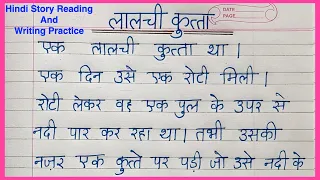 Hindi Story Reading
And
Writing Practice
लालची कुत्ता
DATE
PAGE
एक लालची कुत्ता था।
एक दिन उसे एक रोटी मिली।
रोटी लेकर वह एक पुल के उपर से
नदी पार कर रहा था। तभी उसकी
नजर एक कुत्ते पर पड़ी जो उसे नदी के